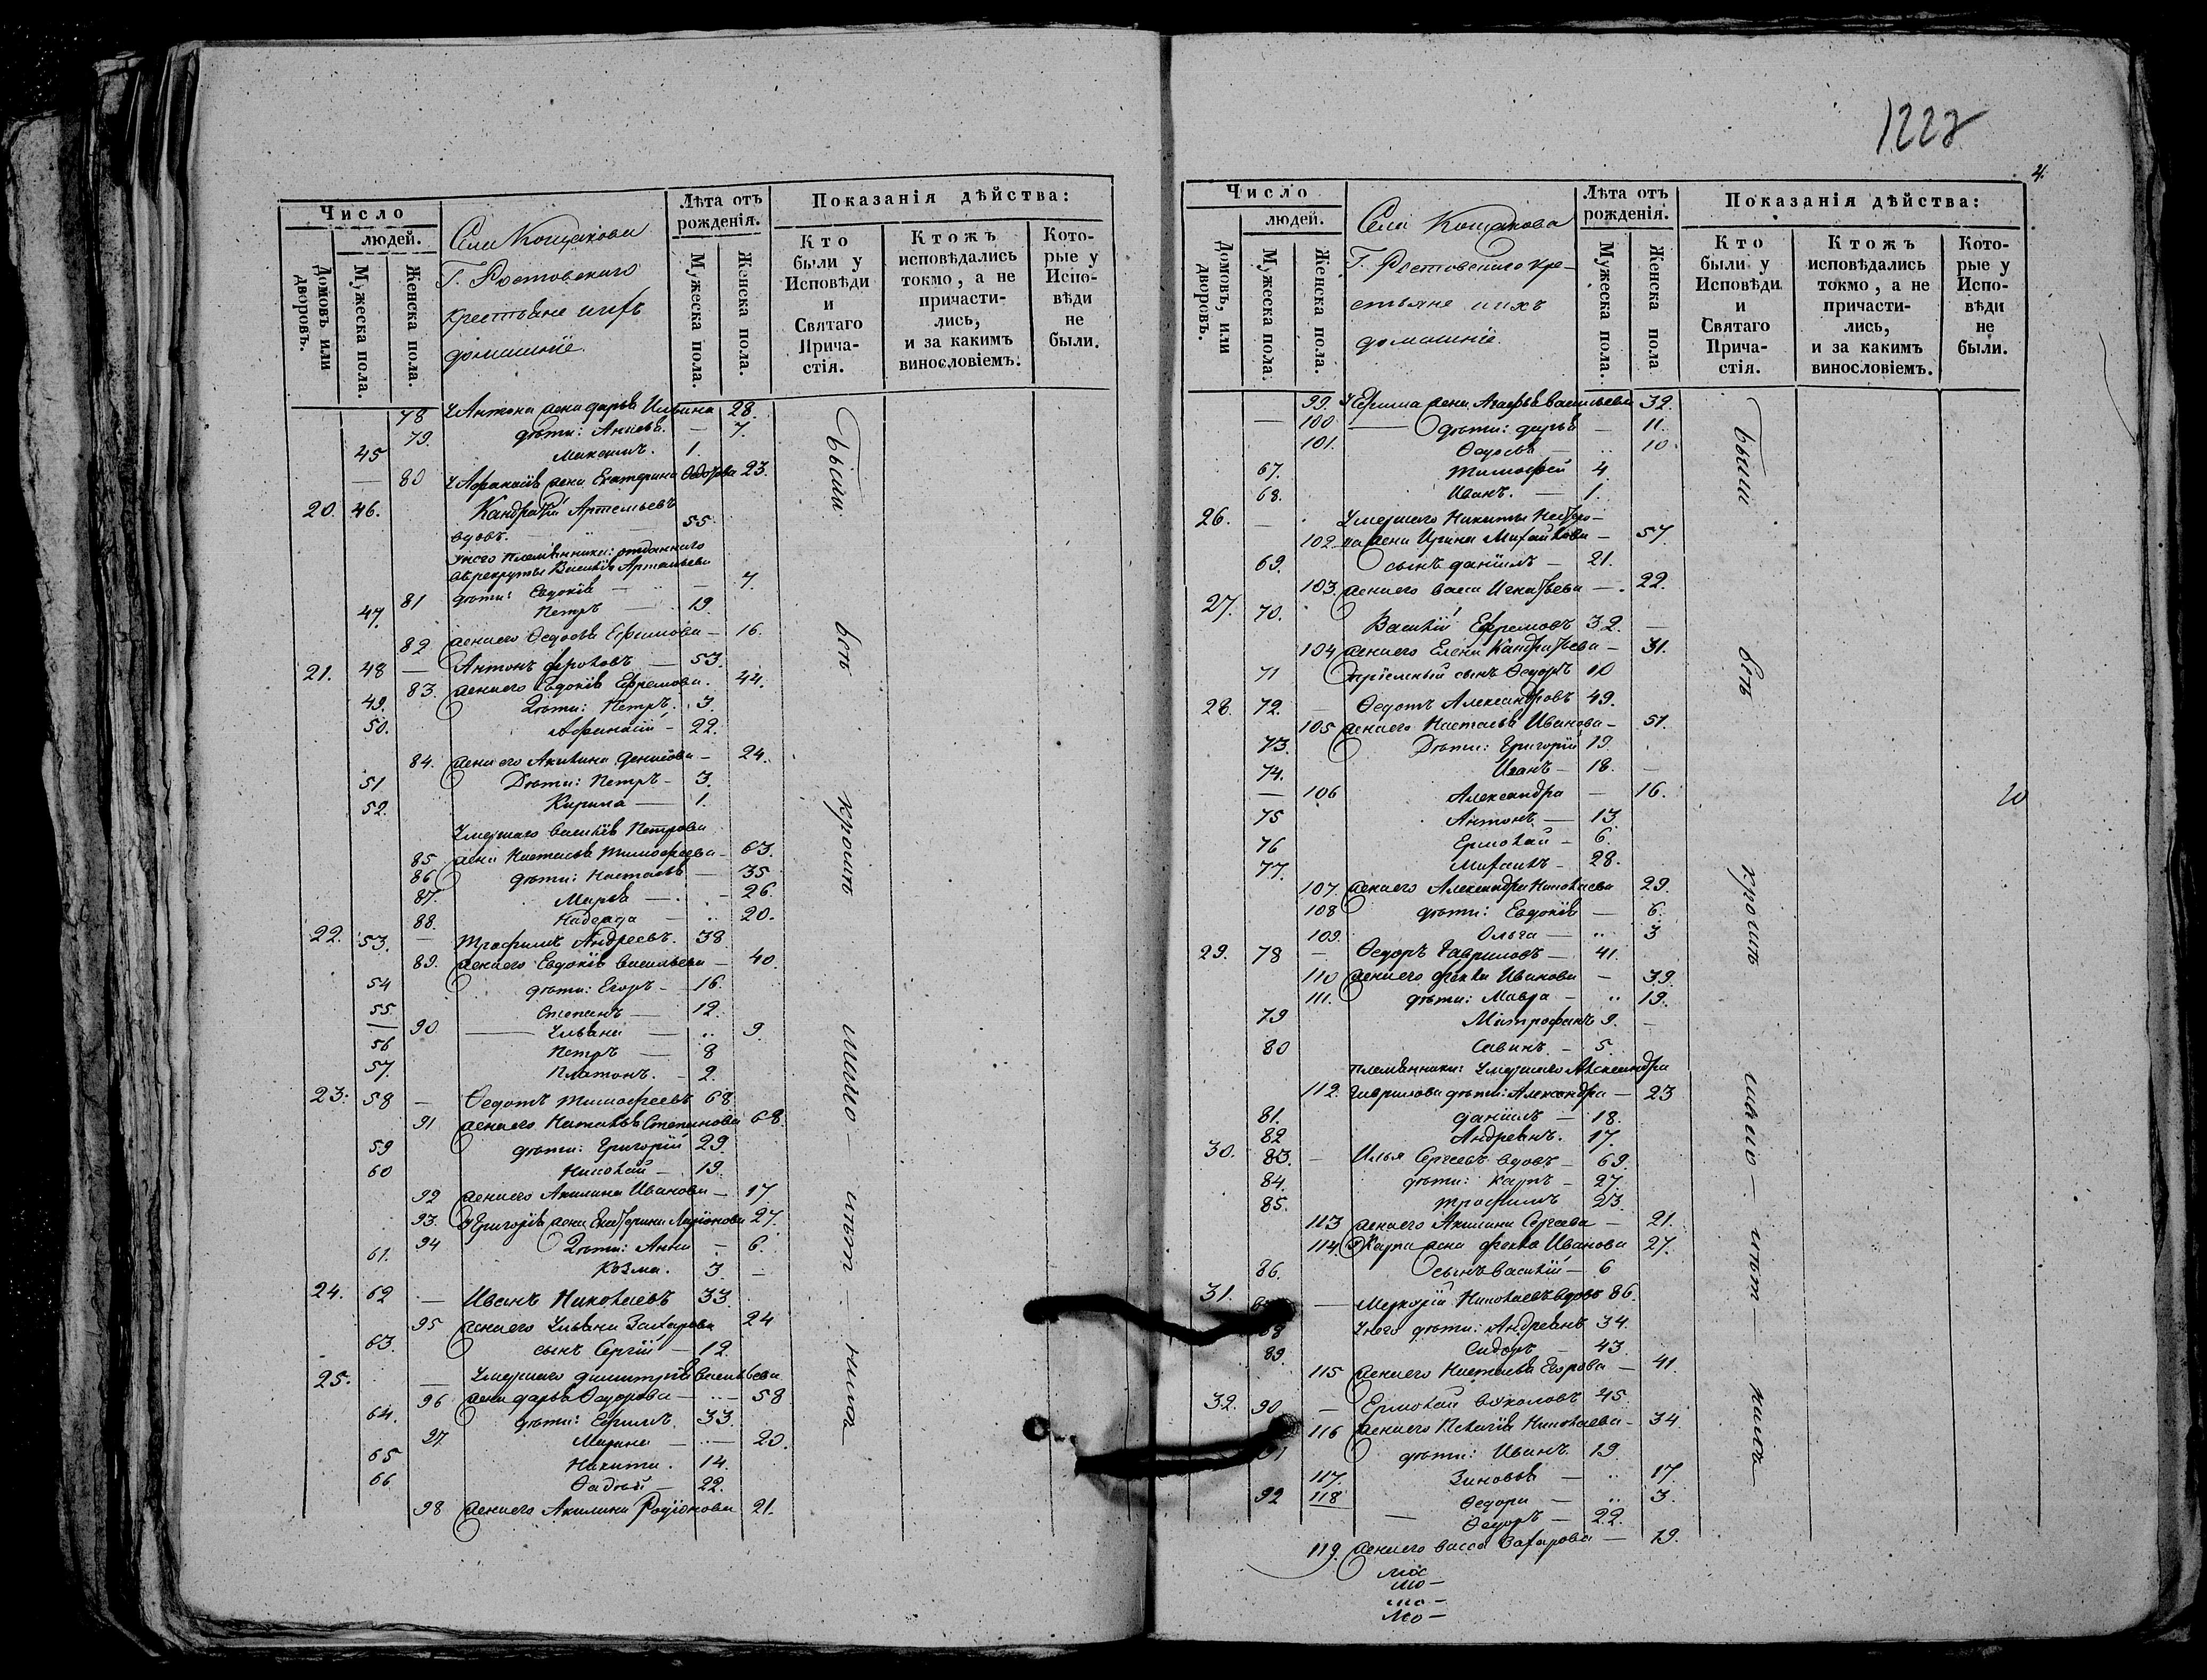 1222
4.
Число
людей.
Домовъ или дворовъ.
Мужеска пола.
Женска пола.
Села Кощакова
Г. Ростовскаго
крестьяне ихъ
домашніе.
Лѣта отъ рожденія.
Мужеска пола.
Женска пола.
Показанія дѣйства:
Кто были у Исповѣди и Святаго Причастія.
Ктожъ исповѣдались токмо, а не причастились, и за какимъ винословіемъ.
Которые у Исповѣди не были.
78 У Антона жена дарья Ильина 28.
79. дѣти: Анисья. — 7.
45 Максимъ. 1.
80 У Афанасія жена Екатерина Ѳедорова 23.
20. 46. Кандратій Артемьевъ
вдовъ. 55
У него племянники: отданнаго
въ рекруты Василія Артемьева
81 дѣти: Евдокія — 7.
47. Петръ — 19.
82 жена его Ѳедосья Ефимова — 16.
21. 48 — Антонъ Фроловъ — 53.
83. жена его Евдокія Ефремова. 44.
49. Дѣти: Петръ. 3.
50. Афанасій — 22.
84. жена его Акилина Денисова — 24.
51 Дѣти: Петръ — 3.
52. Кирила — 1.
Умершаго Василія Петрова
85 жена Настасья Тимофеева — 63.
86 дѣти: Настасья — 35
87. Марья — 26.
88. Надежда — 20.
22. 53. — Трофимъ Андреевъ. 38
89. жена его Евдокія Васильева — 40.
54 дѣти: Егоръ — 16.
55. Степанъ — 12.
90 Ульяна — 9.
56 Петръ — 8
57. Платонъ. — 2.
23. 58 — Ѳедотъ Тимофеевъ 68
91 жена его Наталья Степанова 68.
59 дѣти: Григорій 29.
60 Николай — 19.
92 жена его Акилина Иванова — 17.
93. У Григорія жена Екатерина Ларіонова 27.
94 Дѣти: Анна — 6.
61. Козма. 3. —
24. 62 — Иванъ Николаевъ 33.
95 жена его Ульяна Захарова 24
63. сынъ Сергій — 12.
25. — Умершаго Димитрія Васильева
96 жена дарья Ѳедорова — 58
64. дѣти: Ефимъ. 33.
97. Марина — 20.
65 Никита. 14.
66 Ѳадѣй — 22.
98 жена его Акилина Родіонова 21.
Были
всѣ
кромѣ
Число
людей.
Домовъ, или дворовъ.
Мужеска пола.
Женска пола.
Села Кощакова
Г. Ростовскаго кре-
стьяне ихъ
домашніе.
Лѣта отъ рожденія.
Мужеска пола.
Женска пола
Показанія дѣйства:
Кто были у Исповѣди и Святаго Причастія.
Ктожъ исповѣдались токмо, а не причастились, и за какимъ винословіемъ.
Которые у Исповѣди не были.
99. У Ефима жена Агафья Васильева 32.
100 дѣти: дарья — 11.
101. Ѳедосья — 10.
67. Тимофей 4.
68. Иванъ. — 1.
26. — Умершаго Никиты
102 жена Ирина Михайлова — 57
69. сынъ даніилъ — 21.
103. жена его Васса Игнатьева — 22.
27. 70. Василій Ефремовъ 32. —
104 жена его Елена Кандратьева — 31.
71 пріемный сынъ Ѳедоръ 10
28. 72. — Ѳедотъ Александровъ 49.
105 жена его Настасья Иванова — 51.
73. Дѣти: Григорій 19.
74. Иванъ — 18. —
106 Александра — 16.
75 Антонъ — 13
76 Ермолай — 6.
77. Михаилъ — 28.
107. жена его Александра Николаева 29.
108 дѣти: Евдокія — 6.
109. Ольга — 3
29. 78 — Ѳедоръ Гавриловъ — 41.
110 жена его Фекла Иванова — 39.
111. дѣти: Мавра — 19.
79 Митрофанъ 9. —
80 Савинъ. — 5.
племянники: Умершаго Александра
112. Гаврилова дѣти: Александра — 23
81. даніилъ — 18.
82 Андреянъ. 17.
30. 83. — Илья Сергеевъ вдовъ — 69.
84. дѣти: Карпъ — 27
85. Трофимъ 23.
113 жена его Акилина Сергеева — 21.
114. У Карпа жена Фекла Иванова 27.
86. сынъ Василій — 6
31. — Меркурій Николаевъ вдовъ 86.
У него дѣти: Андреянъ 34.
89. Сидоръ — 43.
115 жена его Настасья Егорова — 41
32. 90 — Ермолай Вуколовъ 45.
116 жена его Пелагія Николаева — 34.
91 дѣти: Иванъ 19.
117. Зиновья — 17.
118 Ѳедора — 3.
92 — Ѳедоръ — 22.
119. жена его Васса Захарова — 19.
Были
всѣ
кромѣ
10